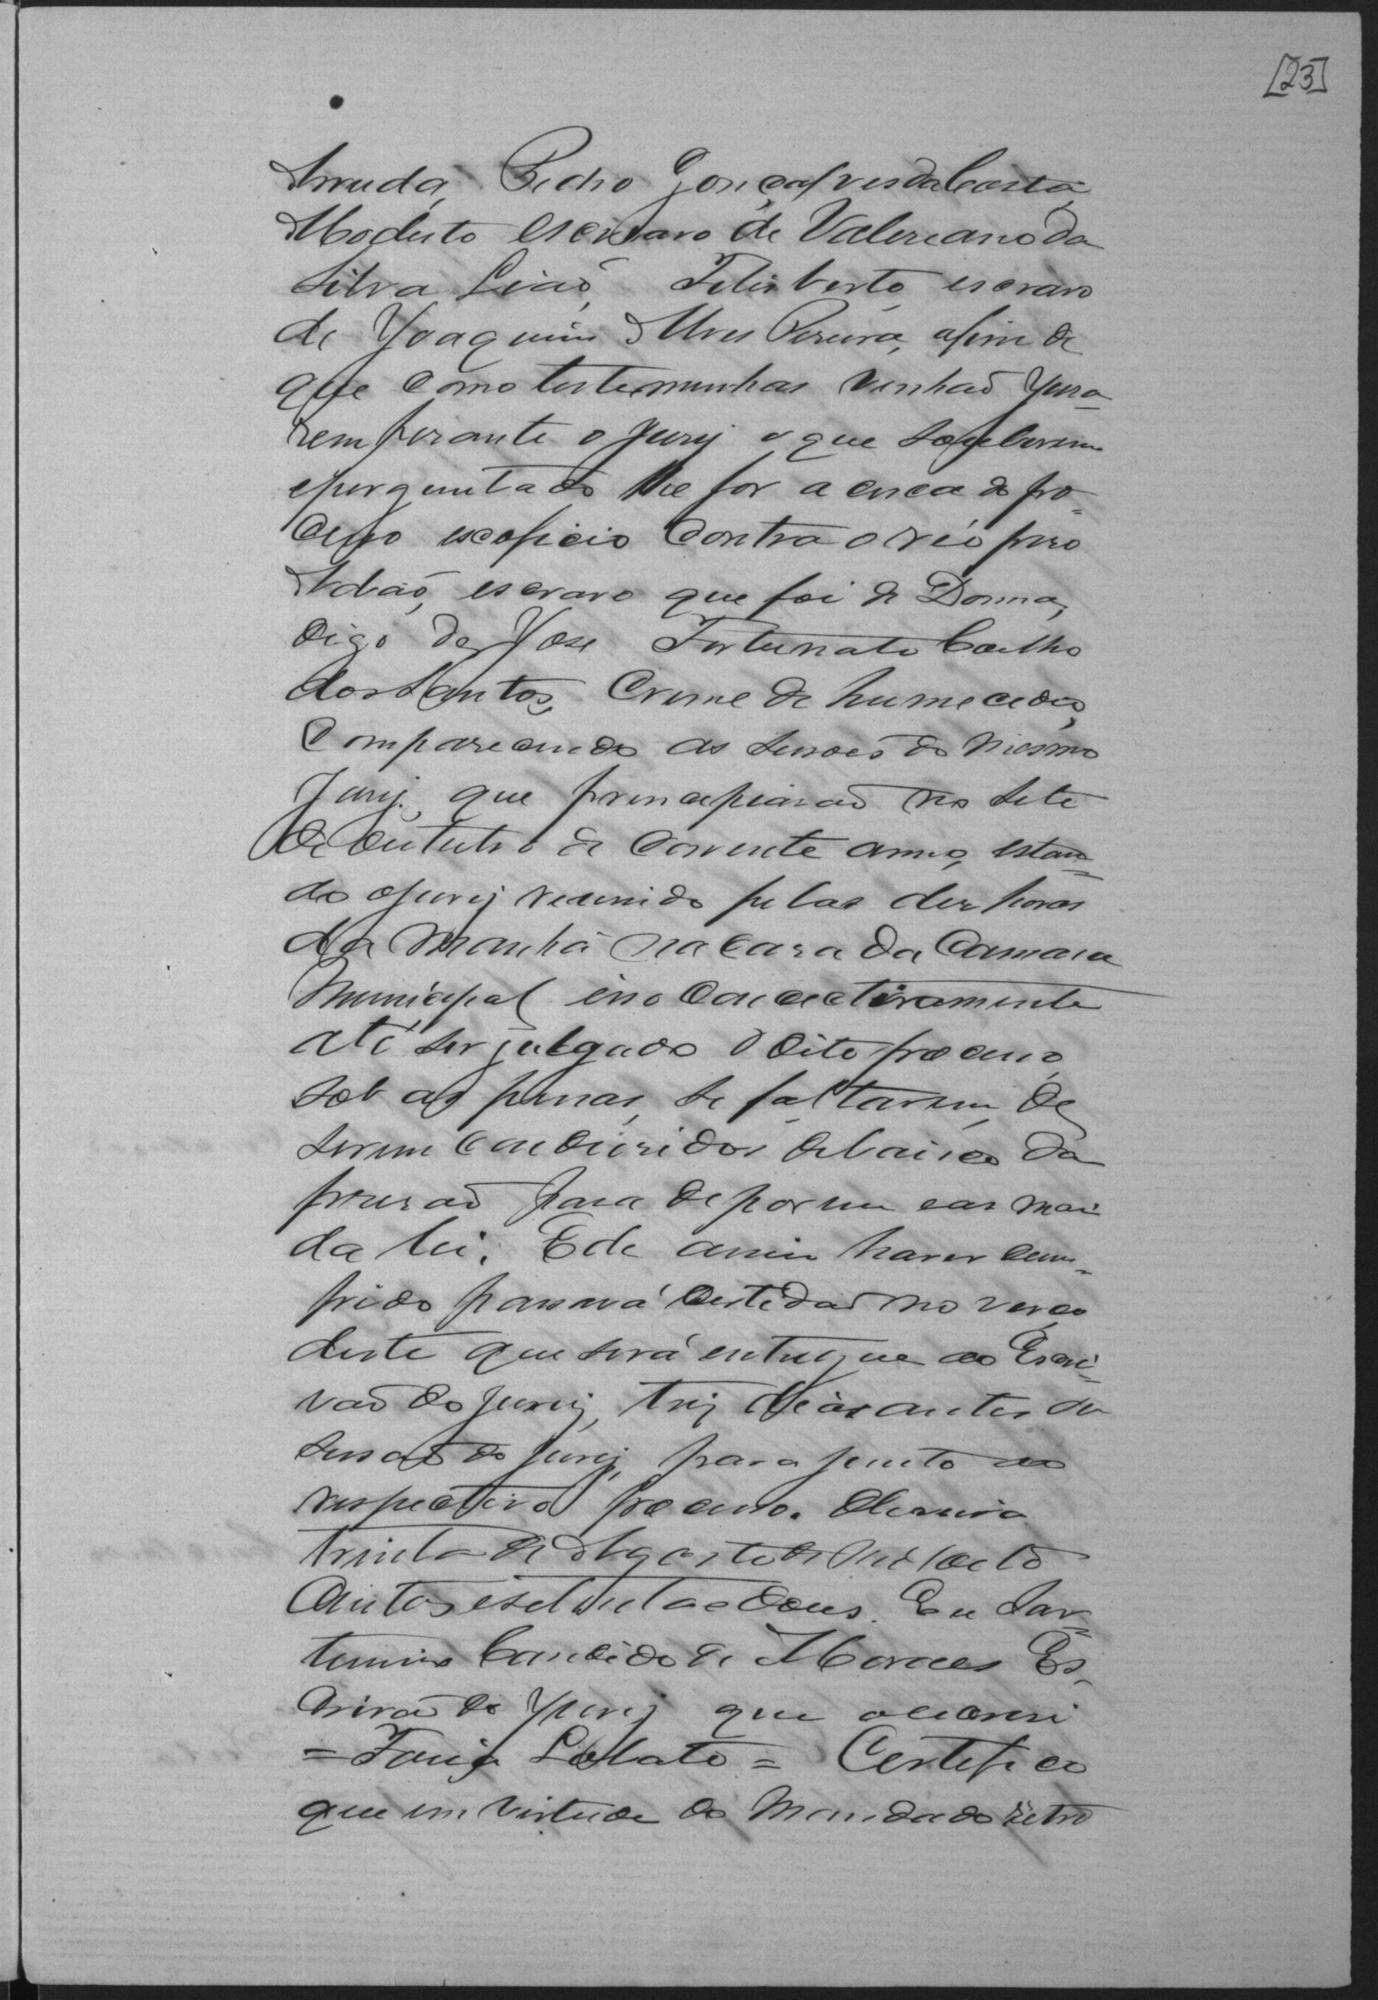 [23]
Arruda, Pedro Gonçalves da Costa,
Modesto escravo de Valereano da
Silva Leaõ, Felisberto, escravo
de Joaquim Alves Pereira, afim de
que como testemunhas venhaõ jura-
rem perante o Jury o que souberem
e perguntado lhe for a cerca do pro=
cesso exoficio contra o reó prezo
Adaõ, escravo que foi de Donna,
digo de Jose Fortunato Coelho
dos Santos, Crime de humecedio,
Comparecendo as sessoes do mesmo
Jury, que principiaraõ no sete
de Outubro do Corrente anno, estan=
do o jury reunido pelas dez horas
da manhã na caza da Camara
Municipal e no Concectivamente
até ser julgado o dito processo,
sob as penas, se faltarem, de
serem conduzidos debaixo da
prizaõ para deporem e as mais
da lei. E de assim haver cum=
prido passará Certidaõ no verço
deste que será entregue ao Escri=
vaõ do jury, trez dias antes da
sessaõ do jury, para junto ao
respectivo processo.
trinta de Agosto de mil oito
Centos e setenta e dous. Eu Sar=
tunino Candido de Moraes Es-
crivaõ do Jury que o escrevi
= Faria Lobato = Certifico
que em virtude do Mandado retro